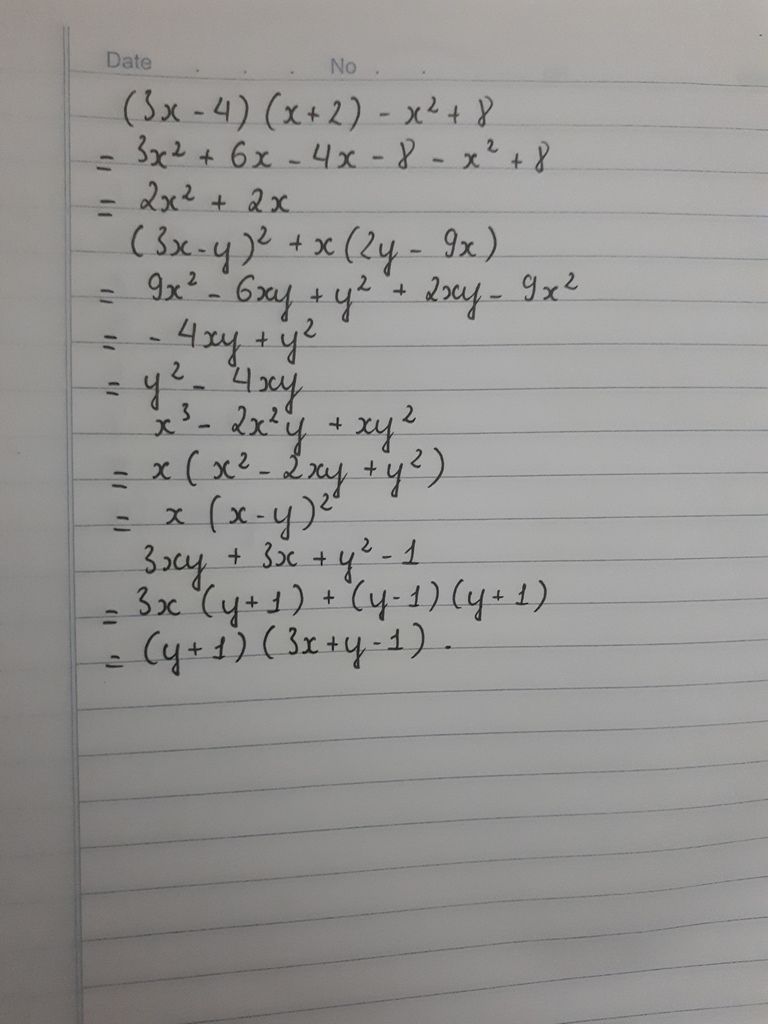 Date . . . No . .
(3x - 4) (x + 2) - x² + 8
= 3x² + 6x - 4x - 8 - x² + 8
= 2x² + 2x
(3x - y)² + x(2y - 9x)
= 9x² - 6xy + y² + 2xy - 9x²
= - 4xy + y²
= y² - 4xy
x³ - 2x²y + xy²
= x (x² - 2xy + y²)
= x (x - y)²
3xy + 3x + y² - 1
= 3x (y + 1) + (y - 1) (y + 1)
= (y + 1) (3x + y - 1) .